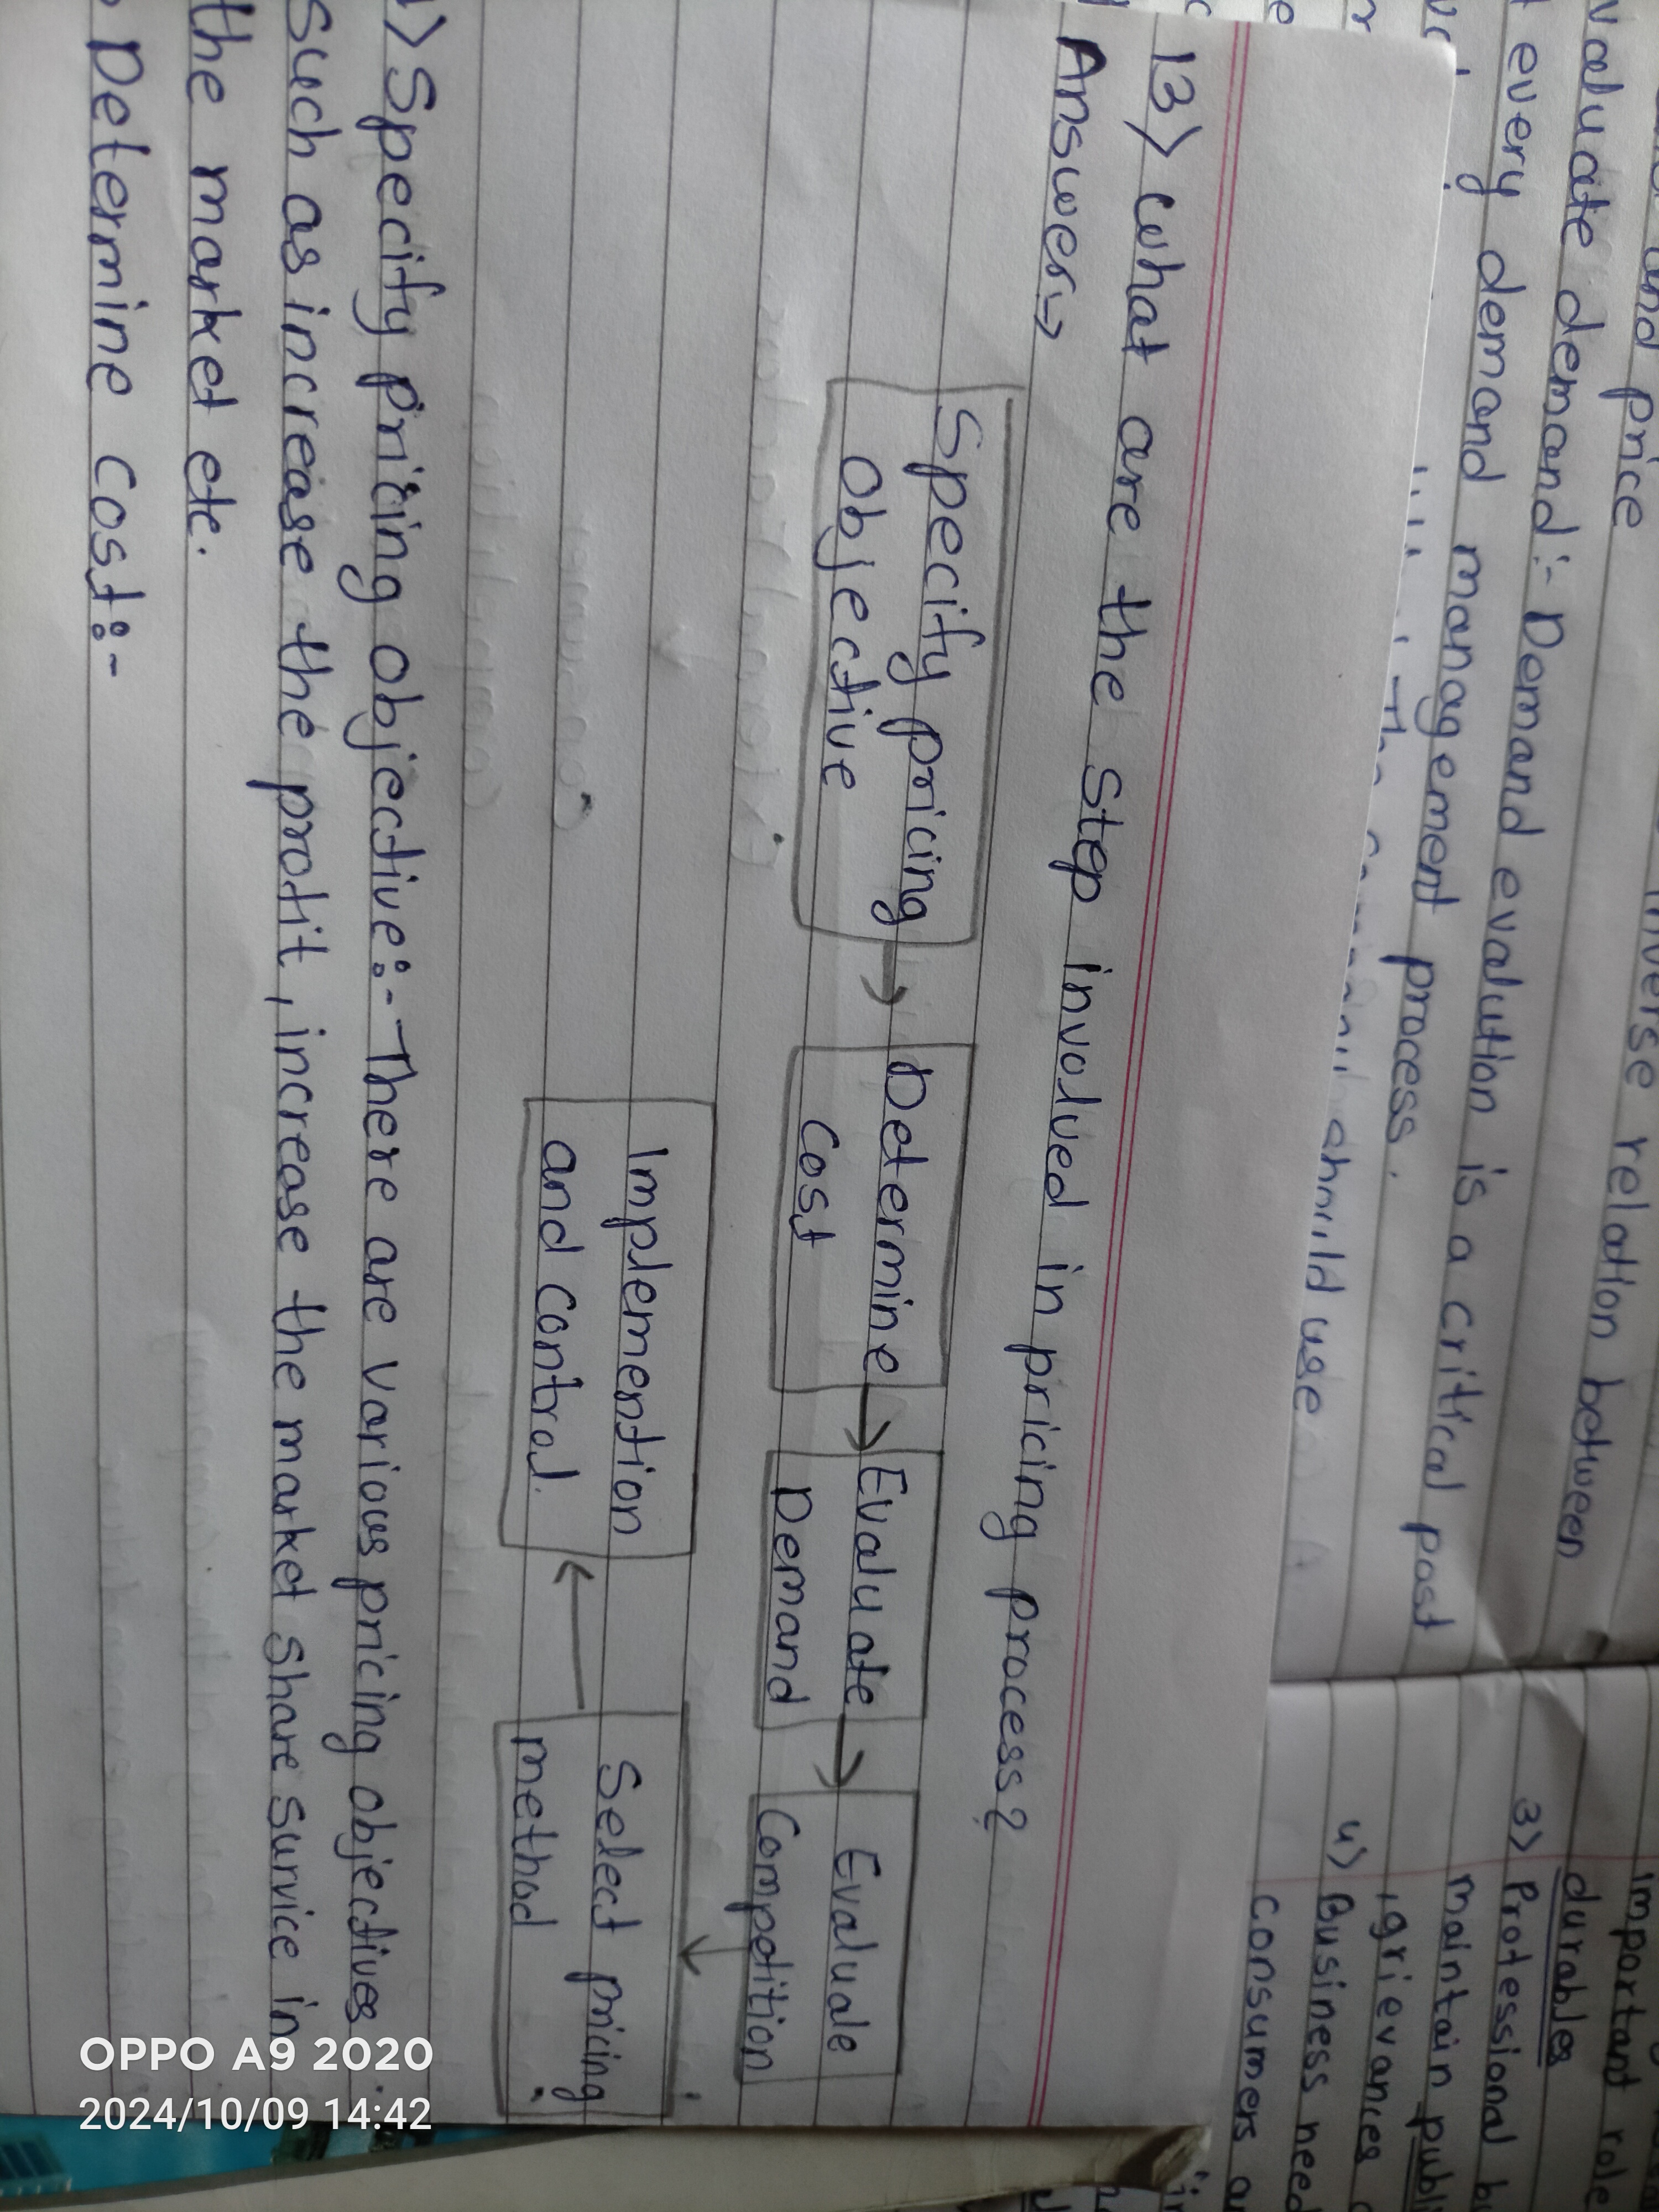 and price
inverse relation between
valuate demand:- Demand evalution is a critical post
every demand management process.
should use
important role
durables
3> Professional b
maintain publ
grievances
4> Business need
consumers a
13> what are the Step involved in pricing process?
Answer:->
Specify pricing
objective
Determine
Cost
Evaluate
Demand
Evaluale
Compdition
Select pricing
method
Implemention
and control.
1> Specify pricing objective:- There are various pricing objectives
such as increase the profit, increase the market share survice in
the market etc.
Determine cost:-
OPPO A9 2020
2024/10/09 14:42